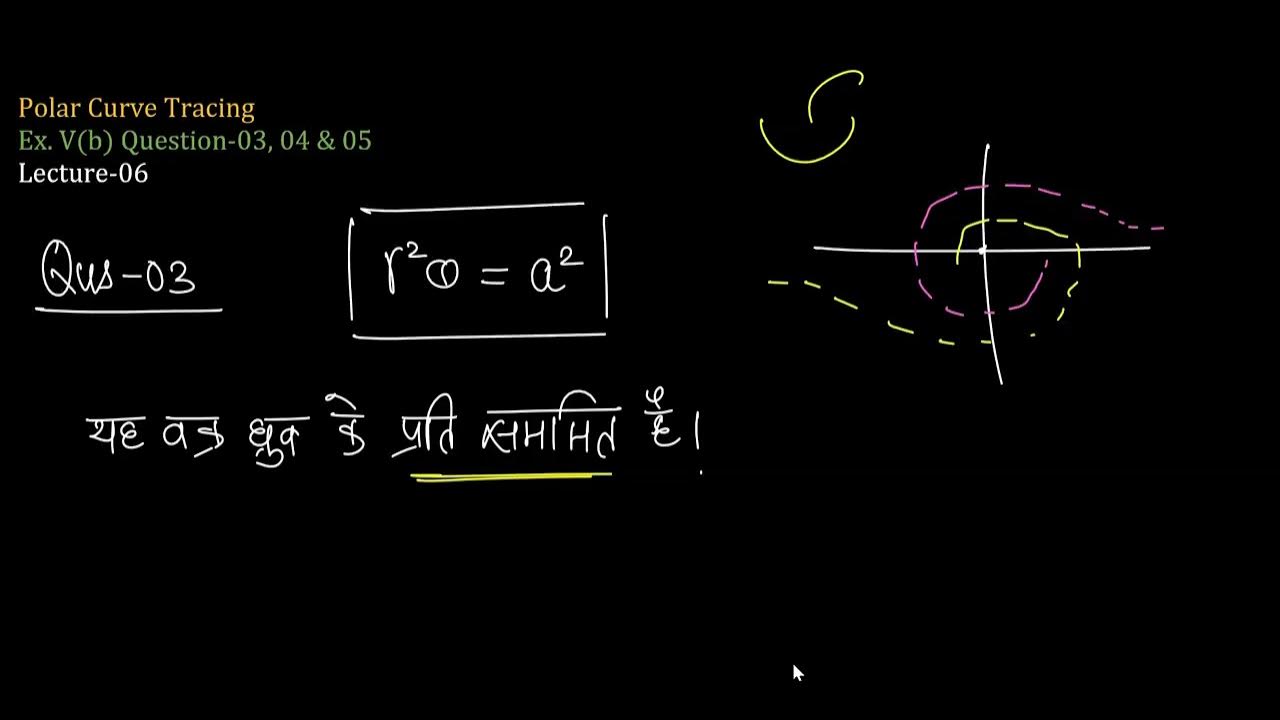 Polar Curve Tracing
Ex. V(b) Question-03, 04 & 05
Lecture-06
Qus-03
r²θ = a²
यह वक्र ध्रुव के प्रति सममित है।